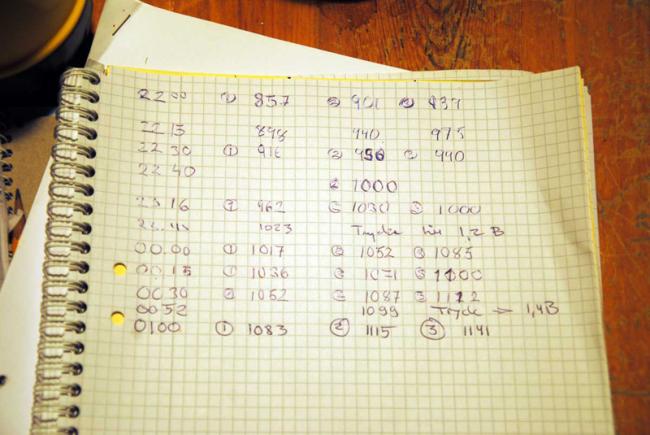 22 00 ① 857 ② 901 ③ 937
22 15 898 940 975
22 30 ① 916 ② 956 ③ 990
22 40 ② 1000
23 16 ① 962 ② 1030 ③ 1000
23.45 1023 Tryck 1,2 B
00.00 ① 1017 ② 1052 ③ 1085
00.15 ① 1036 ② 1071 ③ 1100
00 30 ① 1052 ② 1087 ③ 1122
00 52 1099 Tryck → 1,4B
01 00 ① 1083 ② 1115 ③ 1141